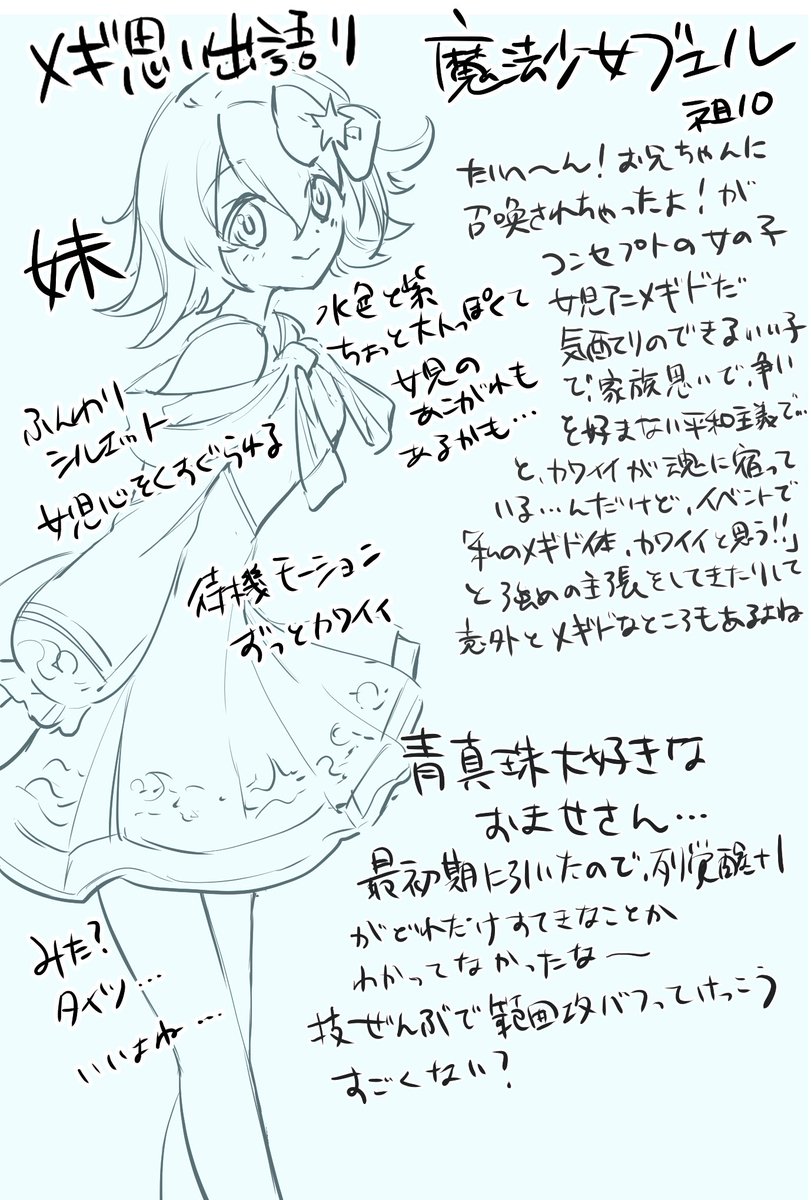 メギ思い出語り
魔法少女ブエル
祖10
たいへ〜ん!お兄ちゃんに
召喚されちゃったよ!が
コンセプトの女の子
女児アニメギドだ
気配りのできるいい子
で、家族思いで、争い
を好まない平和主義で…
と、カワイイが魂に宿って
いる…んだけど、イベントで
「私のメギド体、カワイイと思う!!」
と強めの主張をしてきたりして
意外とメギドなところもあるよね
妹
水色と紫
ちょっと大人っぽくて
女児の
あこがれも
あるかも…
ふんわり
シルエット
女児心をくすぐられる
待機モーション
ずっとカワイイ
青真珠大好きな
おませさん…
最初期に引いたので、列覚醒+1
がどれだけすてきなことか
わかってなかったな〜
技ぜんぶで範囲攻バフってけっこう
すごくない?
みた?
タイツ…
いいよね…